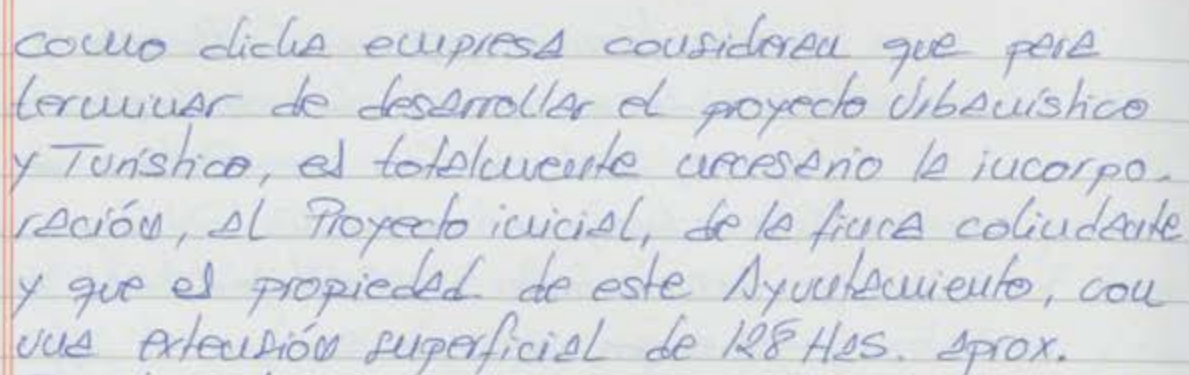 como dicha empresa consideran que para
terminar de desarrollar el proyecto Urbanístico
y Turístico, es totalmente necesario la incorpo-
ración, al Proyecto inicial, de la finca colindante
y que es propiedad de este Ayuntamiento, con
una extensión superficial de 128 Has. aprox.